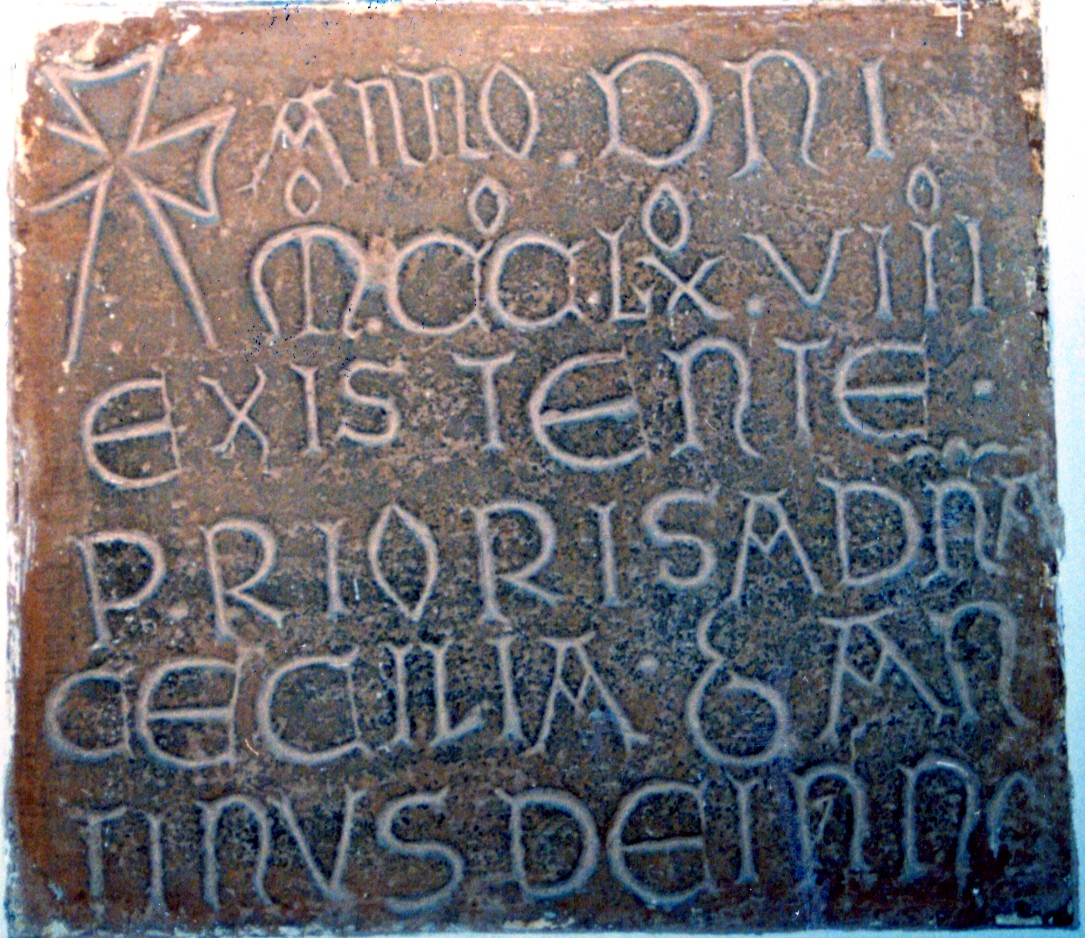 ✠ ANNO · DNI
M · CC · LX · VIII
EXISTENTE ·
PRIORISA DNA
CECILIA · & AN
TINVS DE